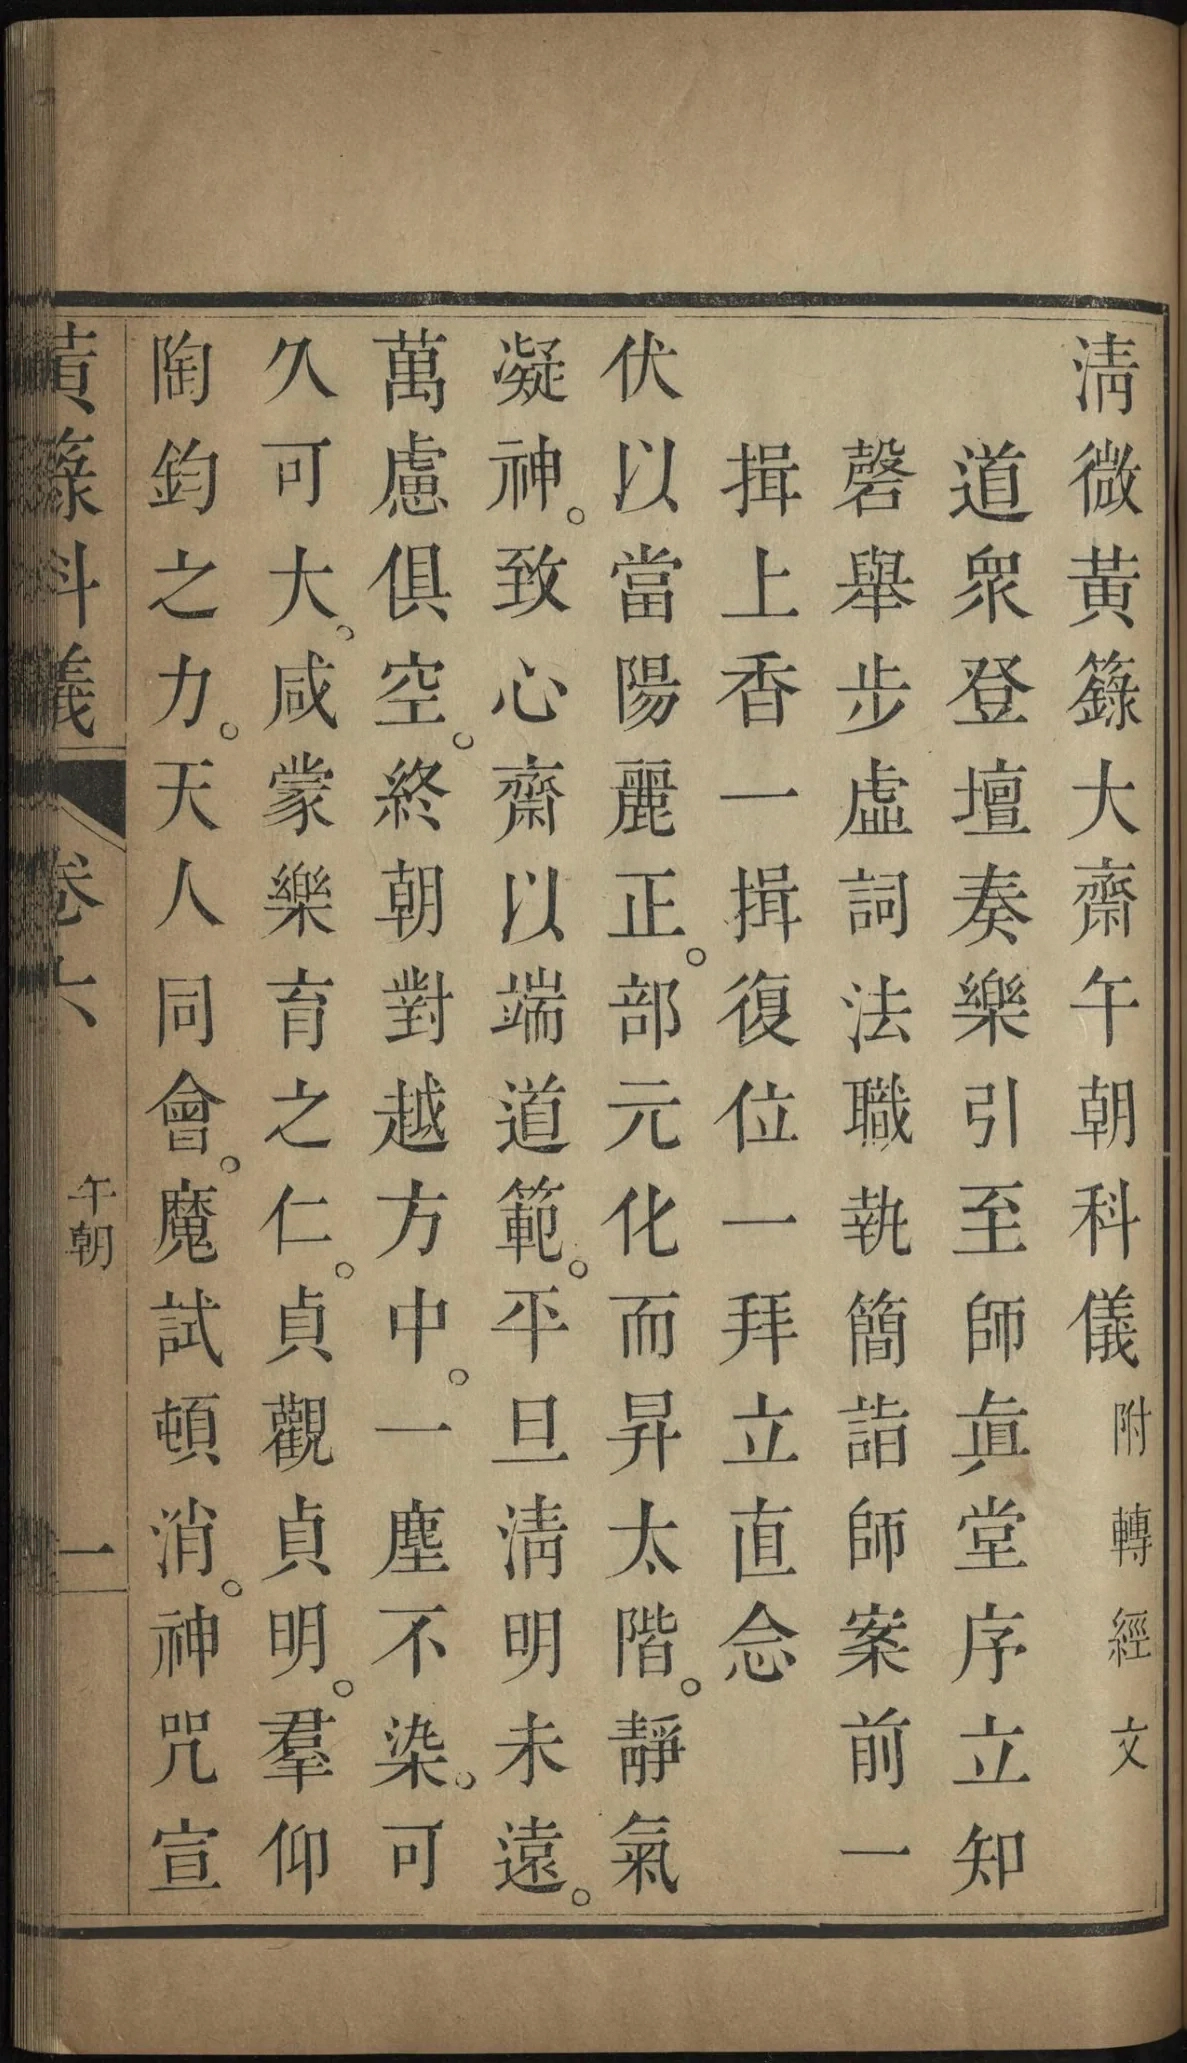 淸微黃籙大齋午朝科儀附轉經文
道眾登壇奏樂引至師眞堂序立知
磬舉步虛詞法職執簡詣師案前一
揖上香一揖復位一拜立直念
伏以當陽麗正。部元化而昇太階。靜氣
凝神。致心齋以端道範。平旦淸明未遠。
萬慮俱空。終朝對越方中。一塵不染。可
久可大。咸蒙樂育之仁。貞觀貞明。羣仰
陶鈞之力。天人同會。魔試頓消。神咒宣
黃籙科儀 卷六 午朝 一